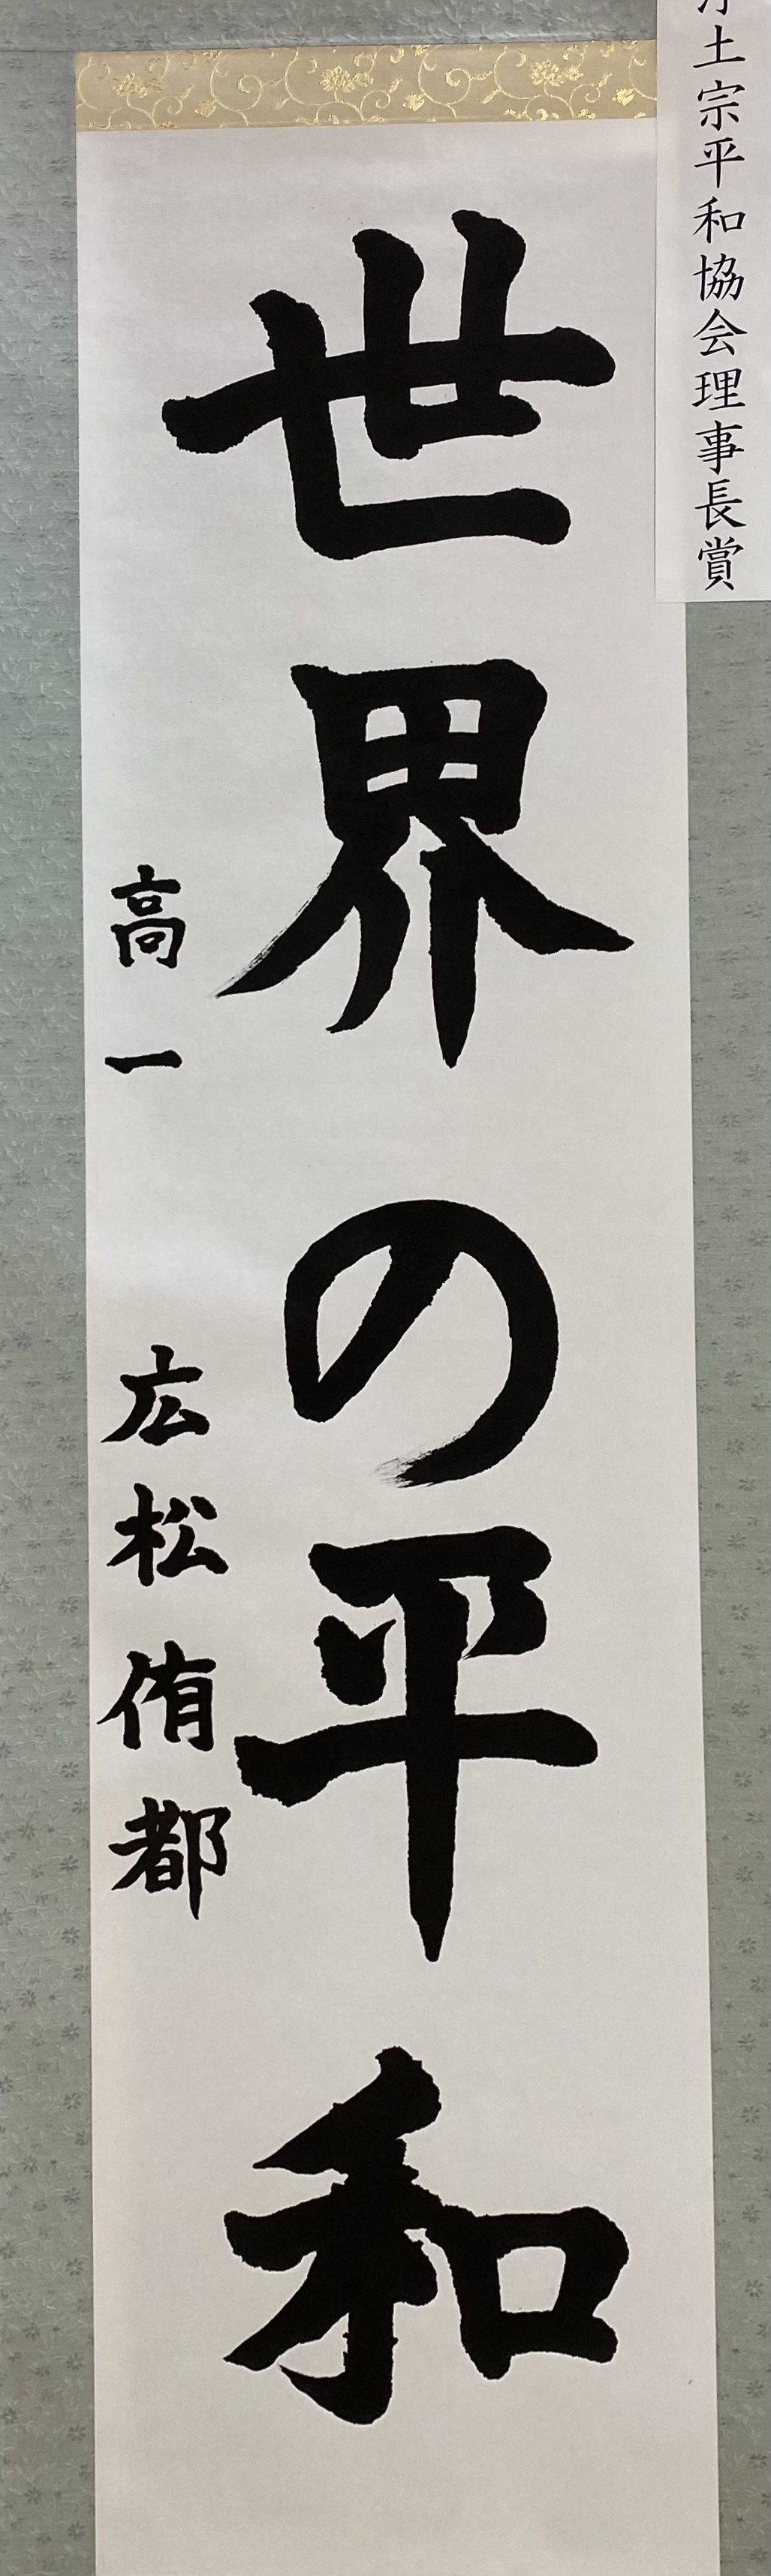 浄土宗平和協会理事長賞
世界の平和
高一 広松侑都